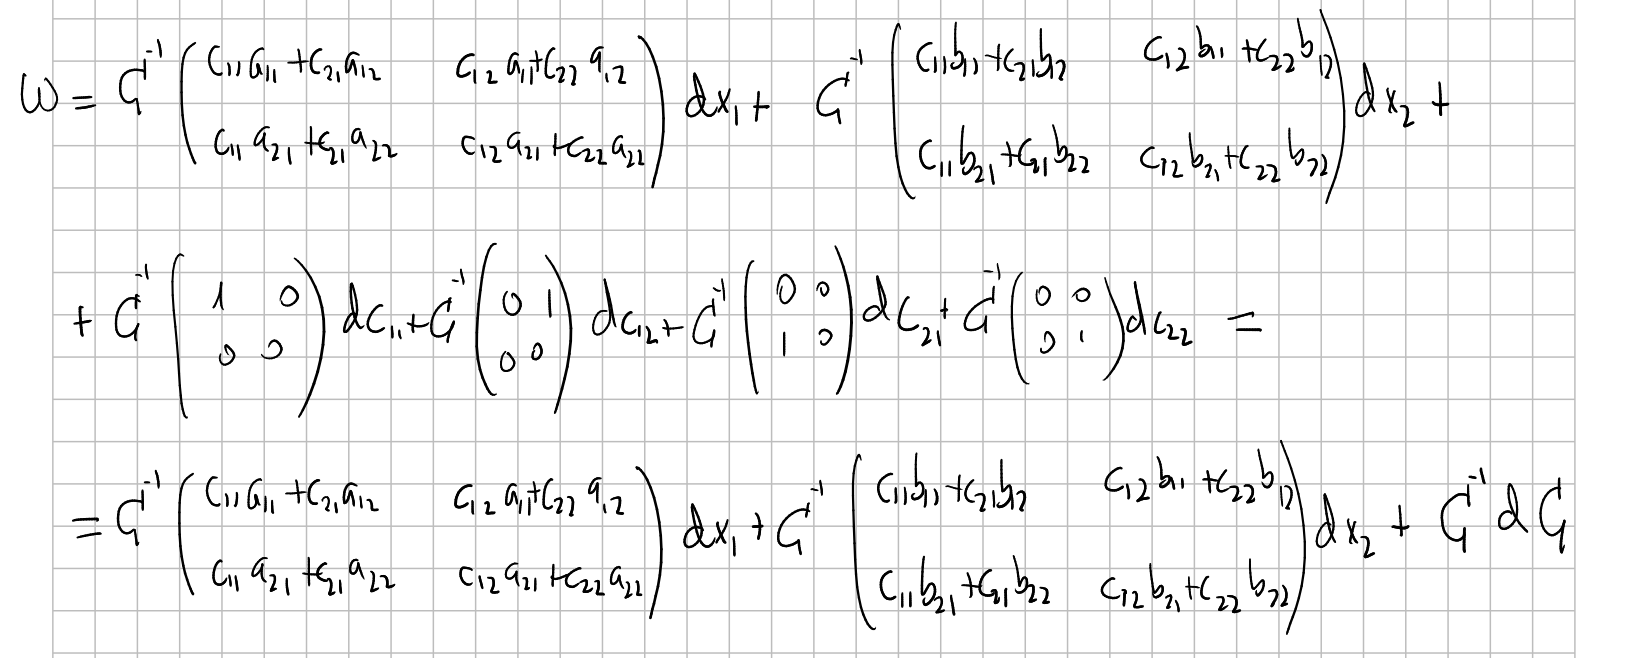 ω = G⁻¹ ( c₁₁a₁₁+c₂₁a₁₂   c₁₂a₁₁+c₂₂a₁₂ ; c₁₁a₂₁+c₂₁a₂₂   c₁₂a₂₁+c₂₂a₂₂ ) dx₁ + G⁻¹ ( c₁₁b₁₁+c₂₁b₁₂   c₁₂b₁₁+c₂₂b₁₂ ; c₁₁b₂₁+c₂₁b₂₂   c₁₂b₂₁+c₂₂b₂₂ ) dx₂ +
+ G⁻¹ ( 1 0 ; 0 0 ) dc₁₁ + G⁻¹ ( 0 1 ; 0 0 ) dc₁₂ + G⁻¹ ( 0 0 ; 1 0 ) dc₂₁ + G⁻¹ ( 0 0 ; 0 1 ) dc₂₂ =
= G⁻¹ ( c₁₁a₁₁+c₂₁a₁₂   c₁₂a₁₁+c₂₂a₁₂ ; c₁₁a₂₁+c₂₁a₂₂   c₁₂a₂₁+c₂₂a₂₂ ) dx₁ + G⁻¹ ( c₁₁b₁₁+c₂₁b₁₂   c₁₂b₁₁+c₂₂b₁₂ ; c₁₁b₂₁+c₂₁b₂₂   c₁₂b₂₁+c₂₂b₂₂ ) dx₂ + G⁻¹ dG